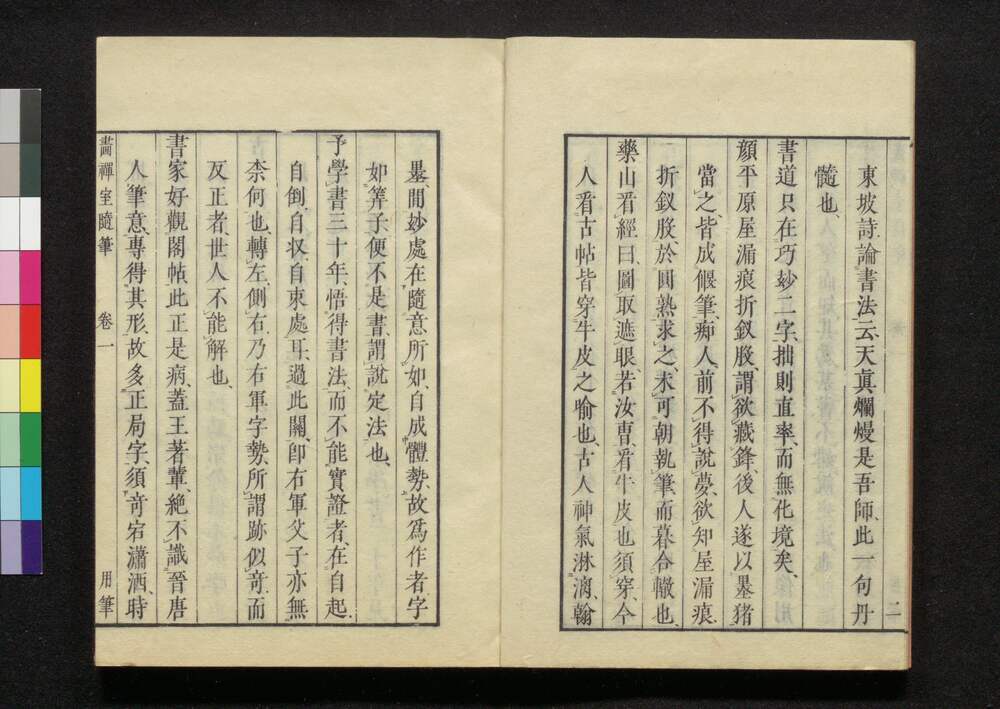 二
東坡詩論書法云、天真爛熳是吾師、此一句丹
髓也、
書道只在巧玅二字、拙則直率、而無化境矣、
顏平原屋漏痕折釵股、謂欲藏鋒、後人遂以墨猪
當之、皆成偃筆、痴人前不得說夢、欲知屋漏痕
折釵股、於圓熟求之、未可朝執筆、而暮合轍也、
藥山看經曰、圖取遮眼、若汝曹看牛皮也須穿、今
人看古帖、皆穿牛皮之喻也、古人神氣淋漓、翰
墨間妙處在隨意所如、自成體勢、故爲作者、字
如筭子、便不是書、謂說定法也、
予學書三十年、悟得書法、而不能實證者、在自起
自倒、自収、自束處耳、過此關、卽右軍父子亦無
柰何也、轉左、側右、乃右軍字勢、所謂跡似竒、而
反正者、世人不能解也、
書家好觀閣帖、此正是病、蓋王著輩、絶不識晉唐
人筆意、專得其形、故多正局字、須竒宕瀟洒、時
畵禪室隨筆 卷一 用筆